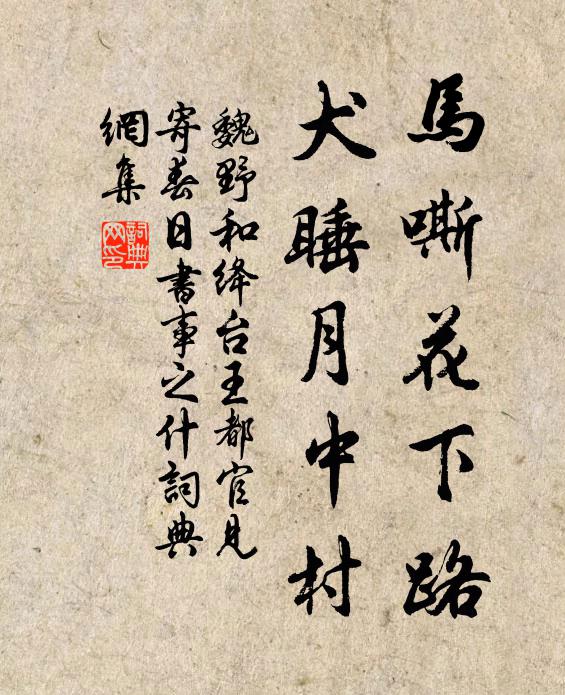 馬嘶花下路
犬睡月中村
魏野和絳台王都官見
寄春日書事之什詞典
網集
詞典
网印